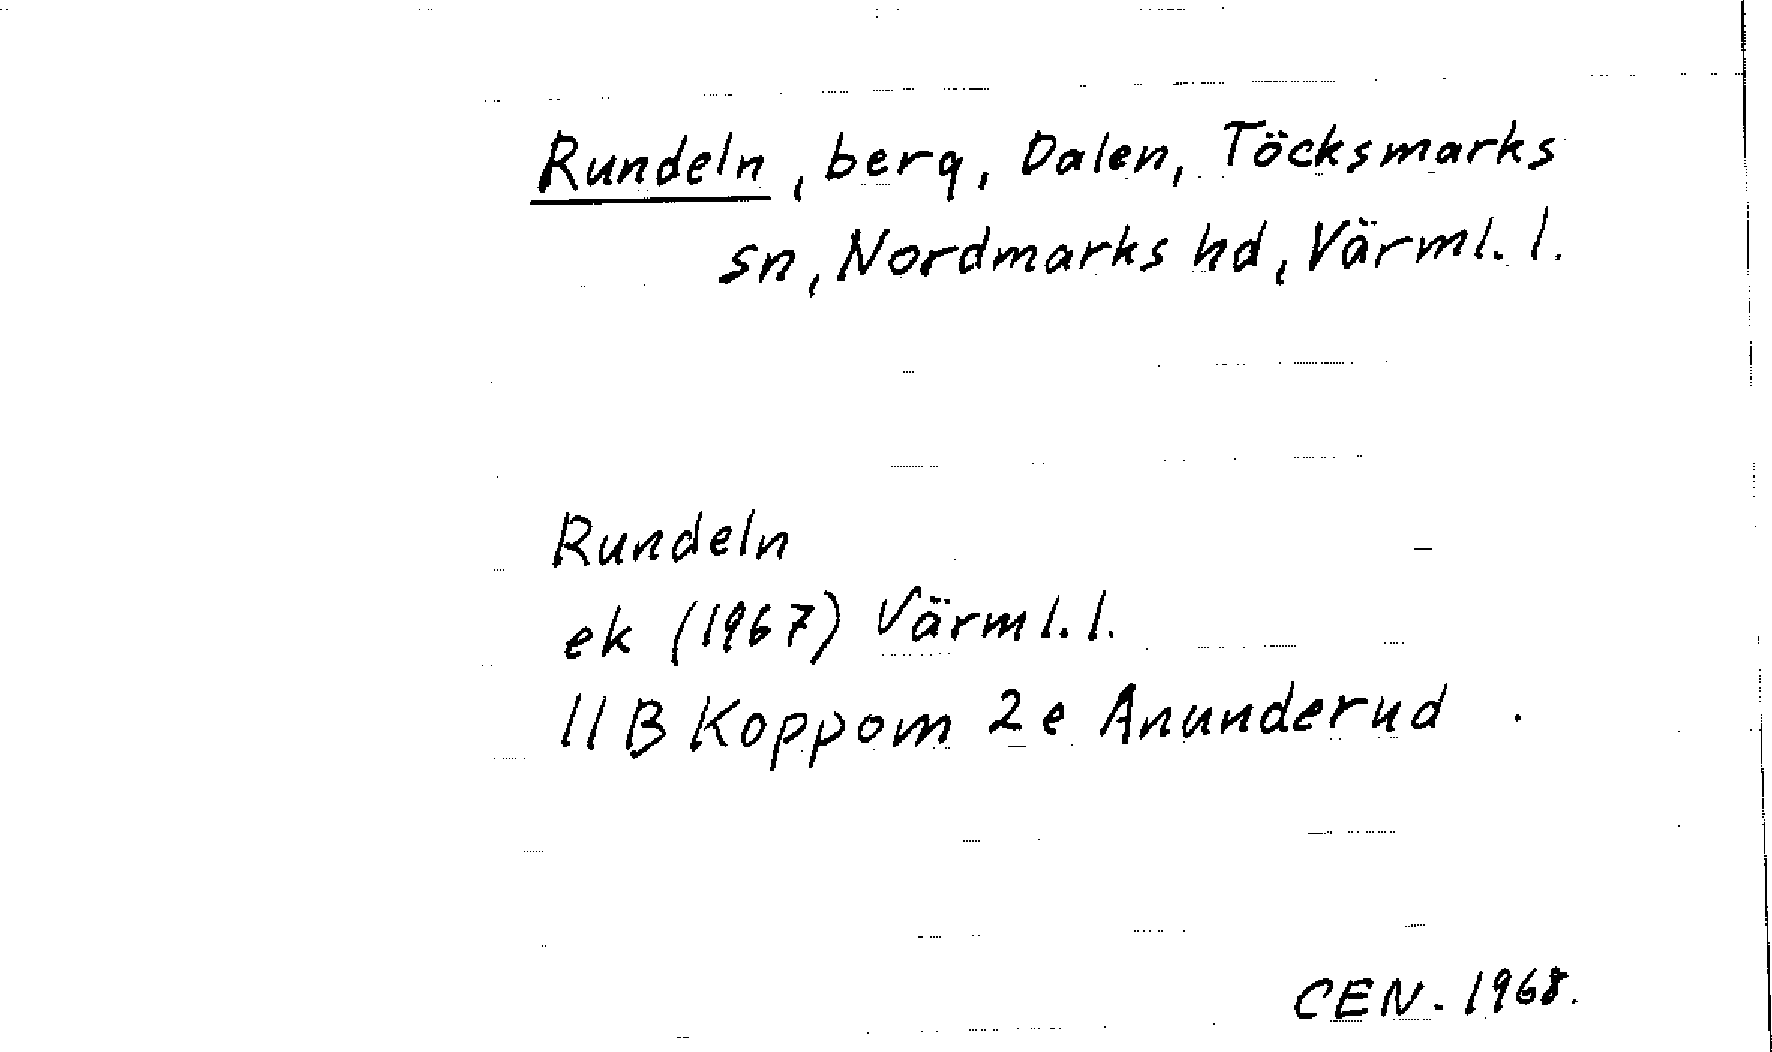 Rundeln, berg, Dalen, Töcksmarks
sn, Nordmarks hd, Värml. l.
Rundeln
ek (1967) Värml. l.
11B Koppom 2e Anunderud
CEN. 1968.